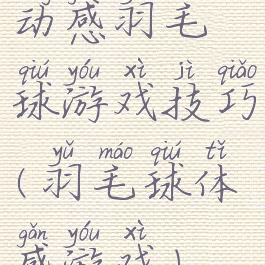 动感羽毛
qiú yóu xì jì qiǎo
球游戏技巧
yǔ máo qiú tǐ
(羽毛球体
gǎn yóu xì
感游戏)